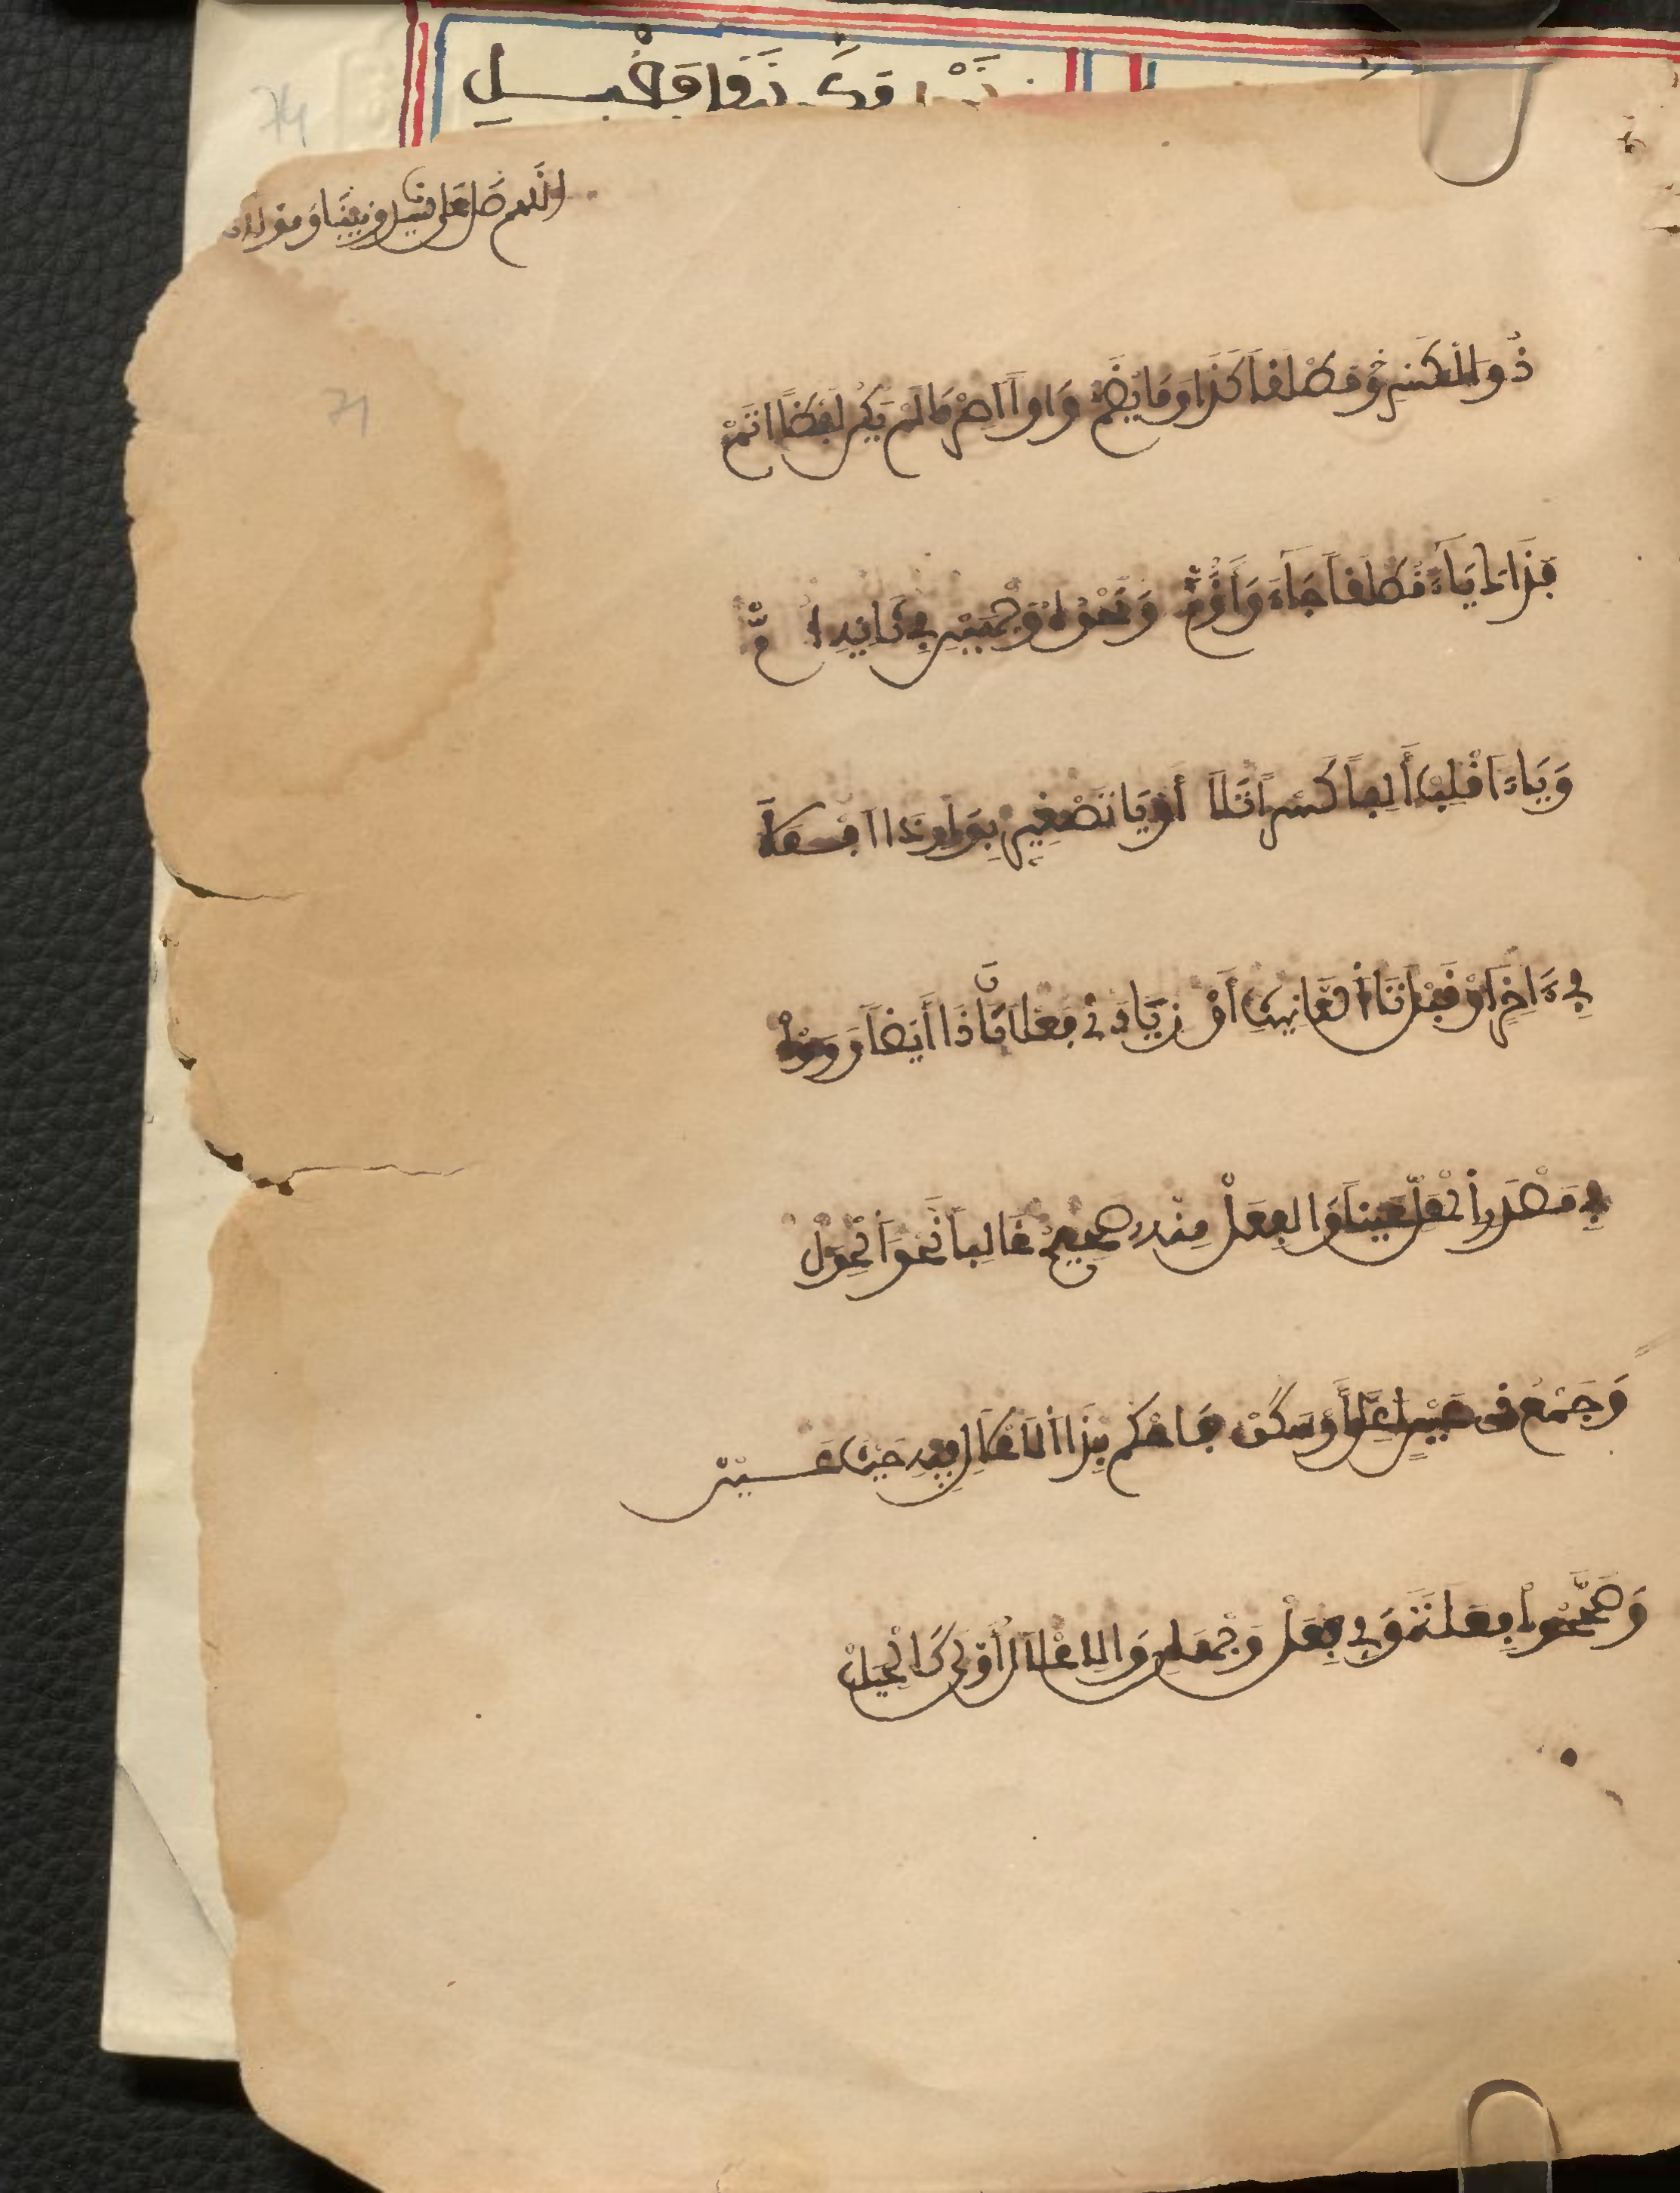 اللهم صل على سيدنا ونبينا ومولانا
ذُو الْكَسْرِ مُطْلَقاً كَذَا وَمَا يُضَمْ وَاواً اَصِرْ مَا لَمْ يَكُنْ لَفْظاً اَتَمْ
فَذَاكَ يَاءً مُطْلَقاً جَاءَ وَأَؤُمْ وَنَحْوُهُ وَجْهَيْنِ فِي ثَانِيهِ أُمْ
وَيَاءً اَقْلِبْ أَلِفاً كَسْراً تَلَا أَوْ يَاءَ تَصْغِيرٍ بِوَاوٍ ذَا اَفْعَلَا
فِي ءَاخِرٍ أَوْ قَبْلَ تَا أُنْثَانِيثِ أَوْ زِيَادَتَيْ فَعْلَانَ ذَا أَيْضاً رَأَوْا
فِي مَصْدَرِ أَلْمُعْتَلِّ عَيْناً وَالْفِعَلْ مِنْهُ صَحِيحٌ غَالِباً نَحْوُ أَلْحِوَلْ
وَجَمْعُ ذِي عَيْنٍ أُعِلَّ أَوْ سَكَنْ فَاحْكُمْ بِذَا أَلِاعْلَالِ فِيهِ حَيْثُ عَنْ
وَصَحَّحُوا فِعَلَةً وَفِي فِعَلْ وَجْهَانِ وَالِاعْلَالُ أَوْلَى كَالْحِيَلْ